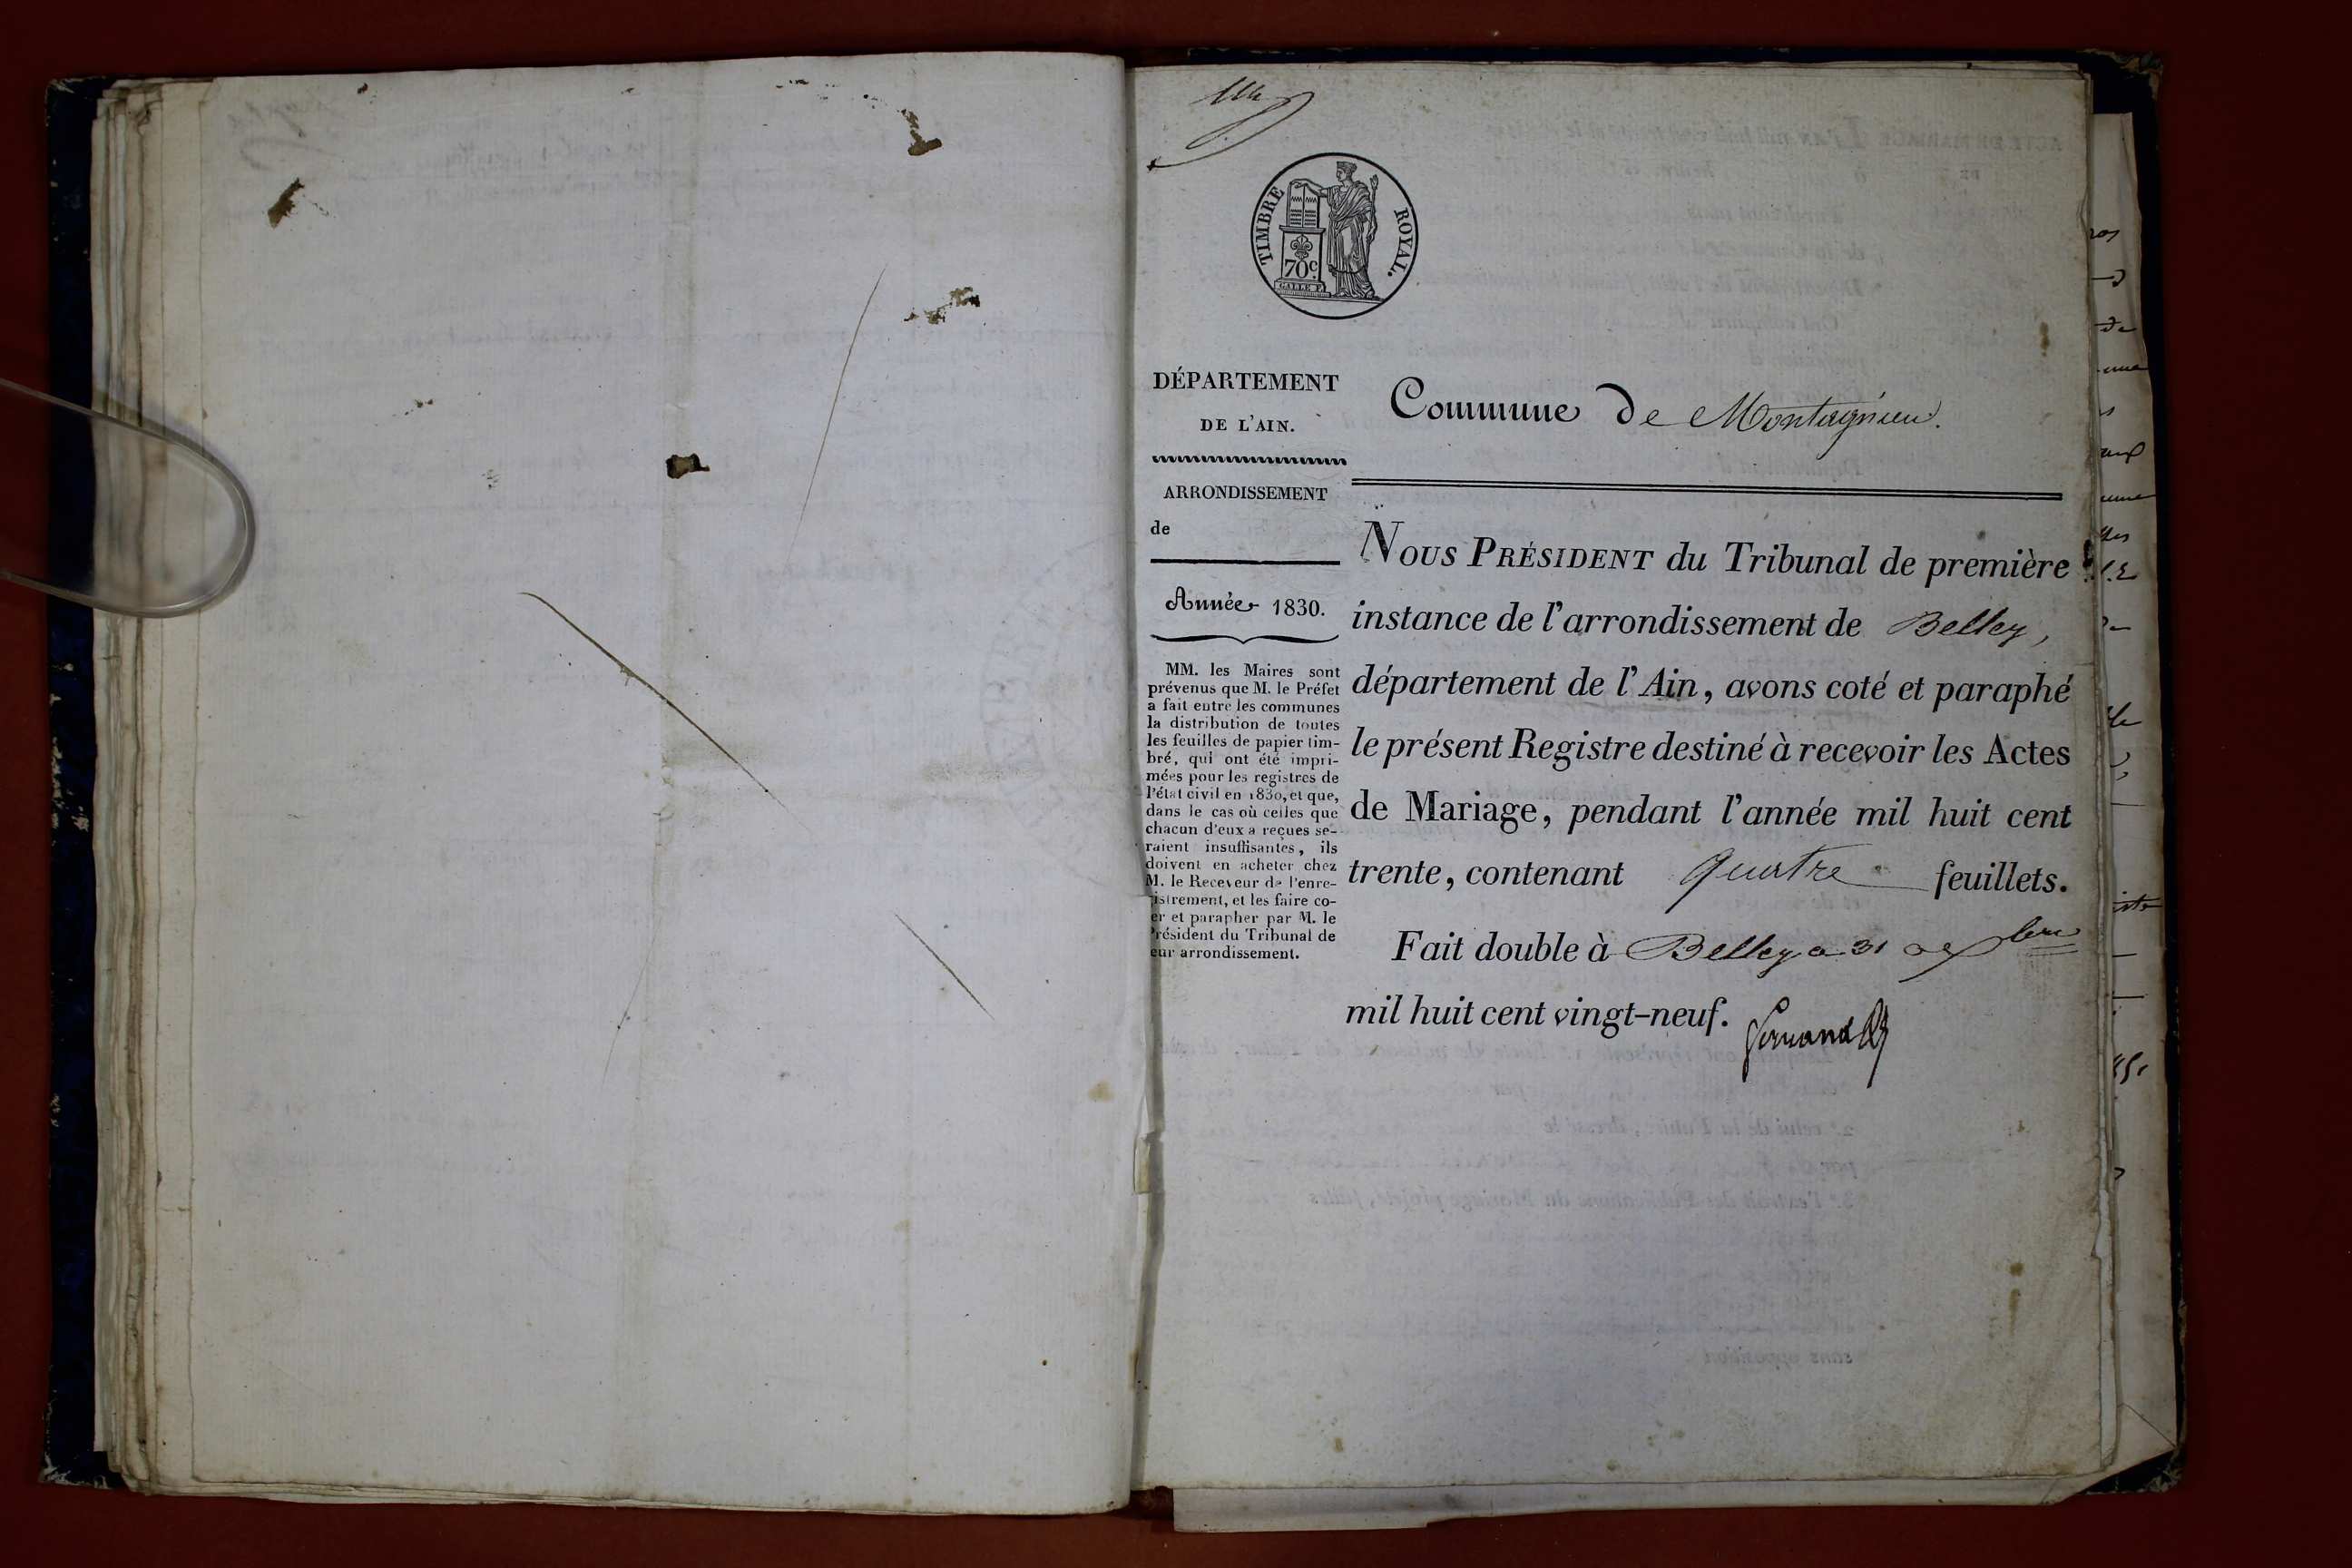 TIMBRE ROYAL.
70c.
DÉPARTEMENT
DE L'AIN.
Commune de Montagnieu.
ARRONDISSEMENT
de
Année 1830.
MM. les Maires sont
prévenus que M. le Préfet
a fait entre les communes
la distribution de toutes
les feuilles de papier tim-
bré, qui ont été impri-
mées pour les registres de
l'état civil en 1830, et que,
dans le cas où celles que
chacun d'eux a reçues se-
raient insuffisantes, ils
doivent en acheter chez
M. le Receveur de l'enre-
gistrement, et les faire co-
er et parapher par M. le
Président du Tribunal de
eur arrondissement.
NOUS PRÉSIDENT du Tribunal de première
instance de l'arrondissement de Belley,
département de l'Ain, avons coté et paraphé
le présent Registre destiné à recevoir les Actes
de Mariage, pendant l'année mil huit cent
trente, contenant quatre feuillets.
Fait double à Belley 31
mil huit cent vingt-neuf.